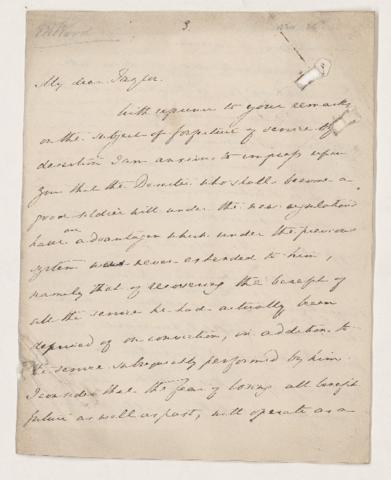 3.
My dear
with reference to your remarks
on the subject of forfeiture of service by
desertion I am anxious to impress upon
you that the Deserter who shall become a
good soldier will under the new regulations
have an advantage which under the previous
system was never extended to him,
namely that of recovering the benefit of
all the service he had actually been
deprived of on conviction, in addition to
the service subsequently performed by him.
I consider that the fear of losing all benefit
future as well as past, will operate as a